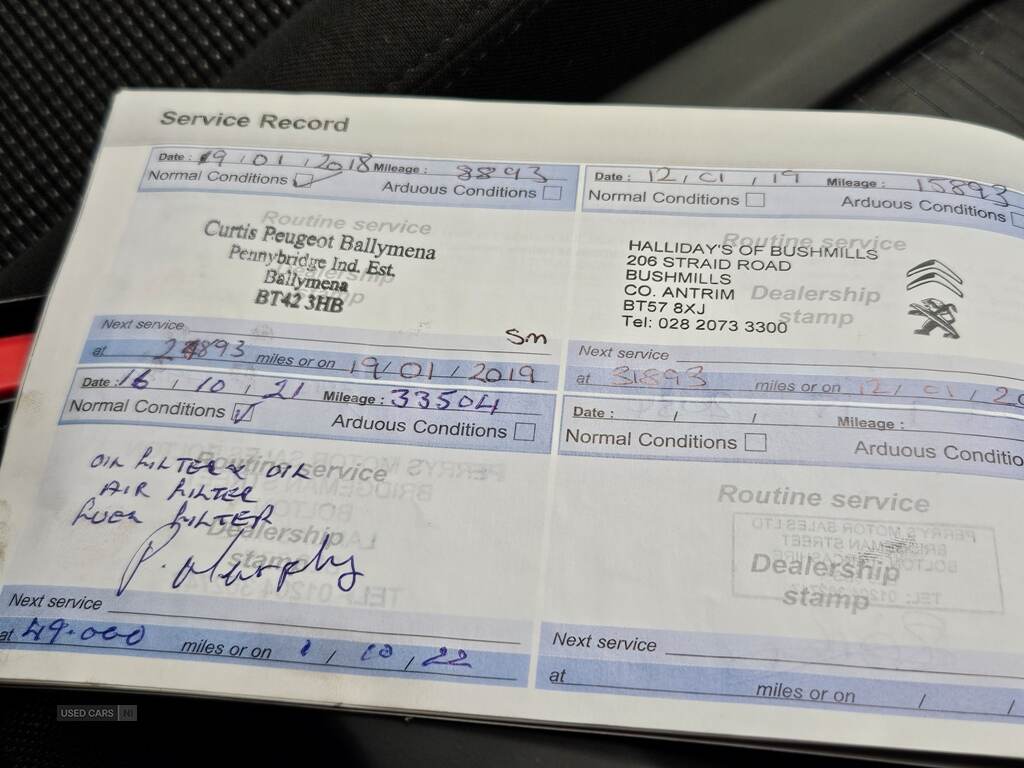 Service Record
Date : 19 / 01 / 2018 Mileage : 8893
Normal Conditions Arduous Conditions
Routine service
Dealership
stamp
Curtis Peugeot Ballymena
Pennybridge Ind. Est.
Ballymena
BT42 3HB
Sm
Next service
at 24893 miles or on 19/01/2019
Date : 12 / 01 / 19 Mileage : 15893
Normal Conditions Arduous Conditions
Routine service
Dealership
stamp
HALLIDAY'S OF BUSHMILLS
206 STRAID ROAD
BUSHMILLS
CO. ANTRIM
BT57 8XJ
Tel: 028 2073 3300
Next service
at 31893 miles or on 12/01/20
Date : 16 / 10 / 21 Mileage : 33504
Normal Conditions Arduous Conditions
Routine service
Dealership
stamp
OIL FILTER & OIL
AIR FILTER
FUEL FILTER
P. Murphy
Next service
at 49.000 miles or on 1 / 10 / 22
Date : / / Mileage :
Normal Conditions Arduous Conditio
Routine service
Dealership
stamp
Next service
at miles or on / /
USED CARS NI